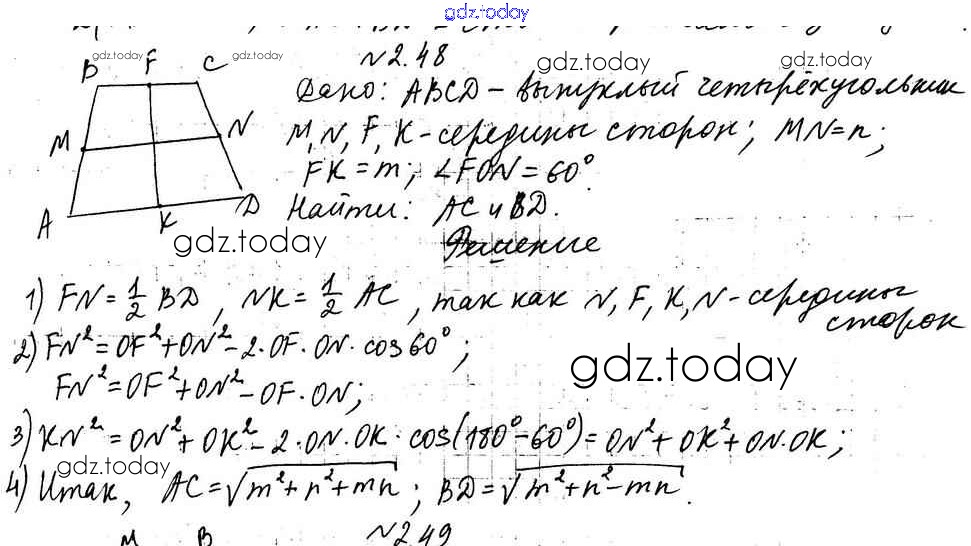 gdz.today
N2.48
gdz.today gdz.today gdz.today gdz.today
B F C
M N
A K D
Дано: ABCD – выпуклый четырёхугольник
M, N, F, K - середины сторон; MN = n;
FK = m; ∠FON = 60°.
Найти: AC и BD.
gdz.today
Решение
1) FN = 1/2 BD, NK = 1/2 AC, так как N, F, K, N - середины
сторон
2) FN² = OF² + ON² - 2·OF·ON·cos 60°;
gdz.today
FN² = OF² + ON² - OF·ON;
3) KN² = ON² + OK² - 2·ON·OK·cos(180° - 60°) = ON² + OK² + ON·OK;
gdz.today
4) Итак, AC = √(m² + n² + mn); BD = √(m² + n² - mn).
M B N2.49